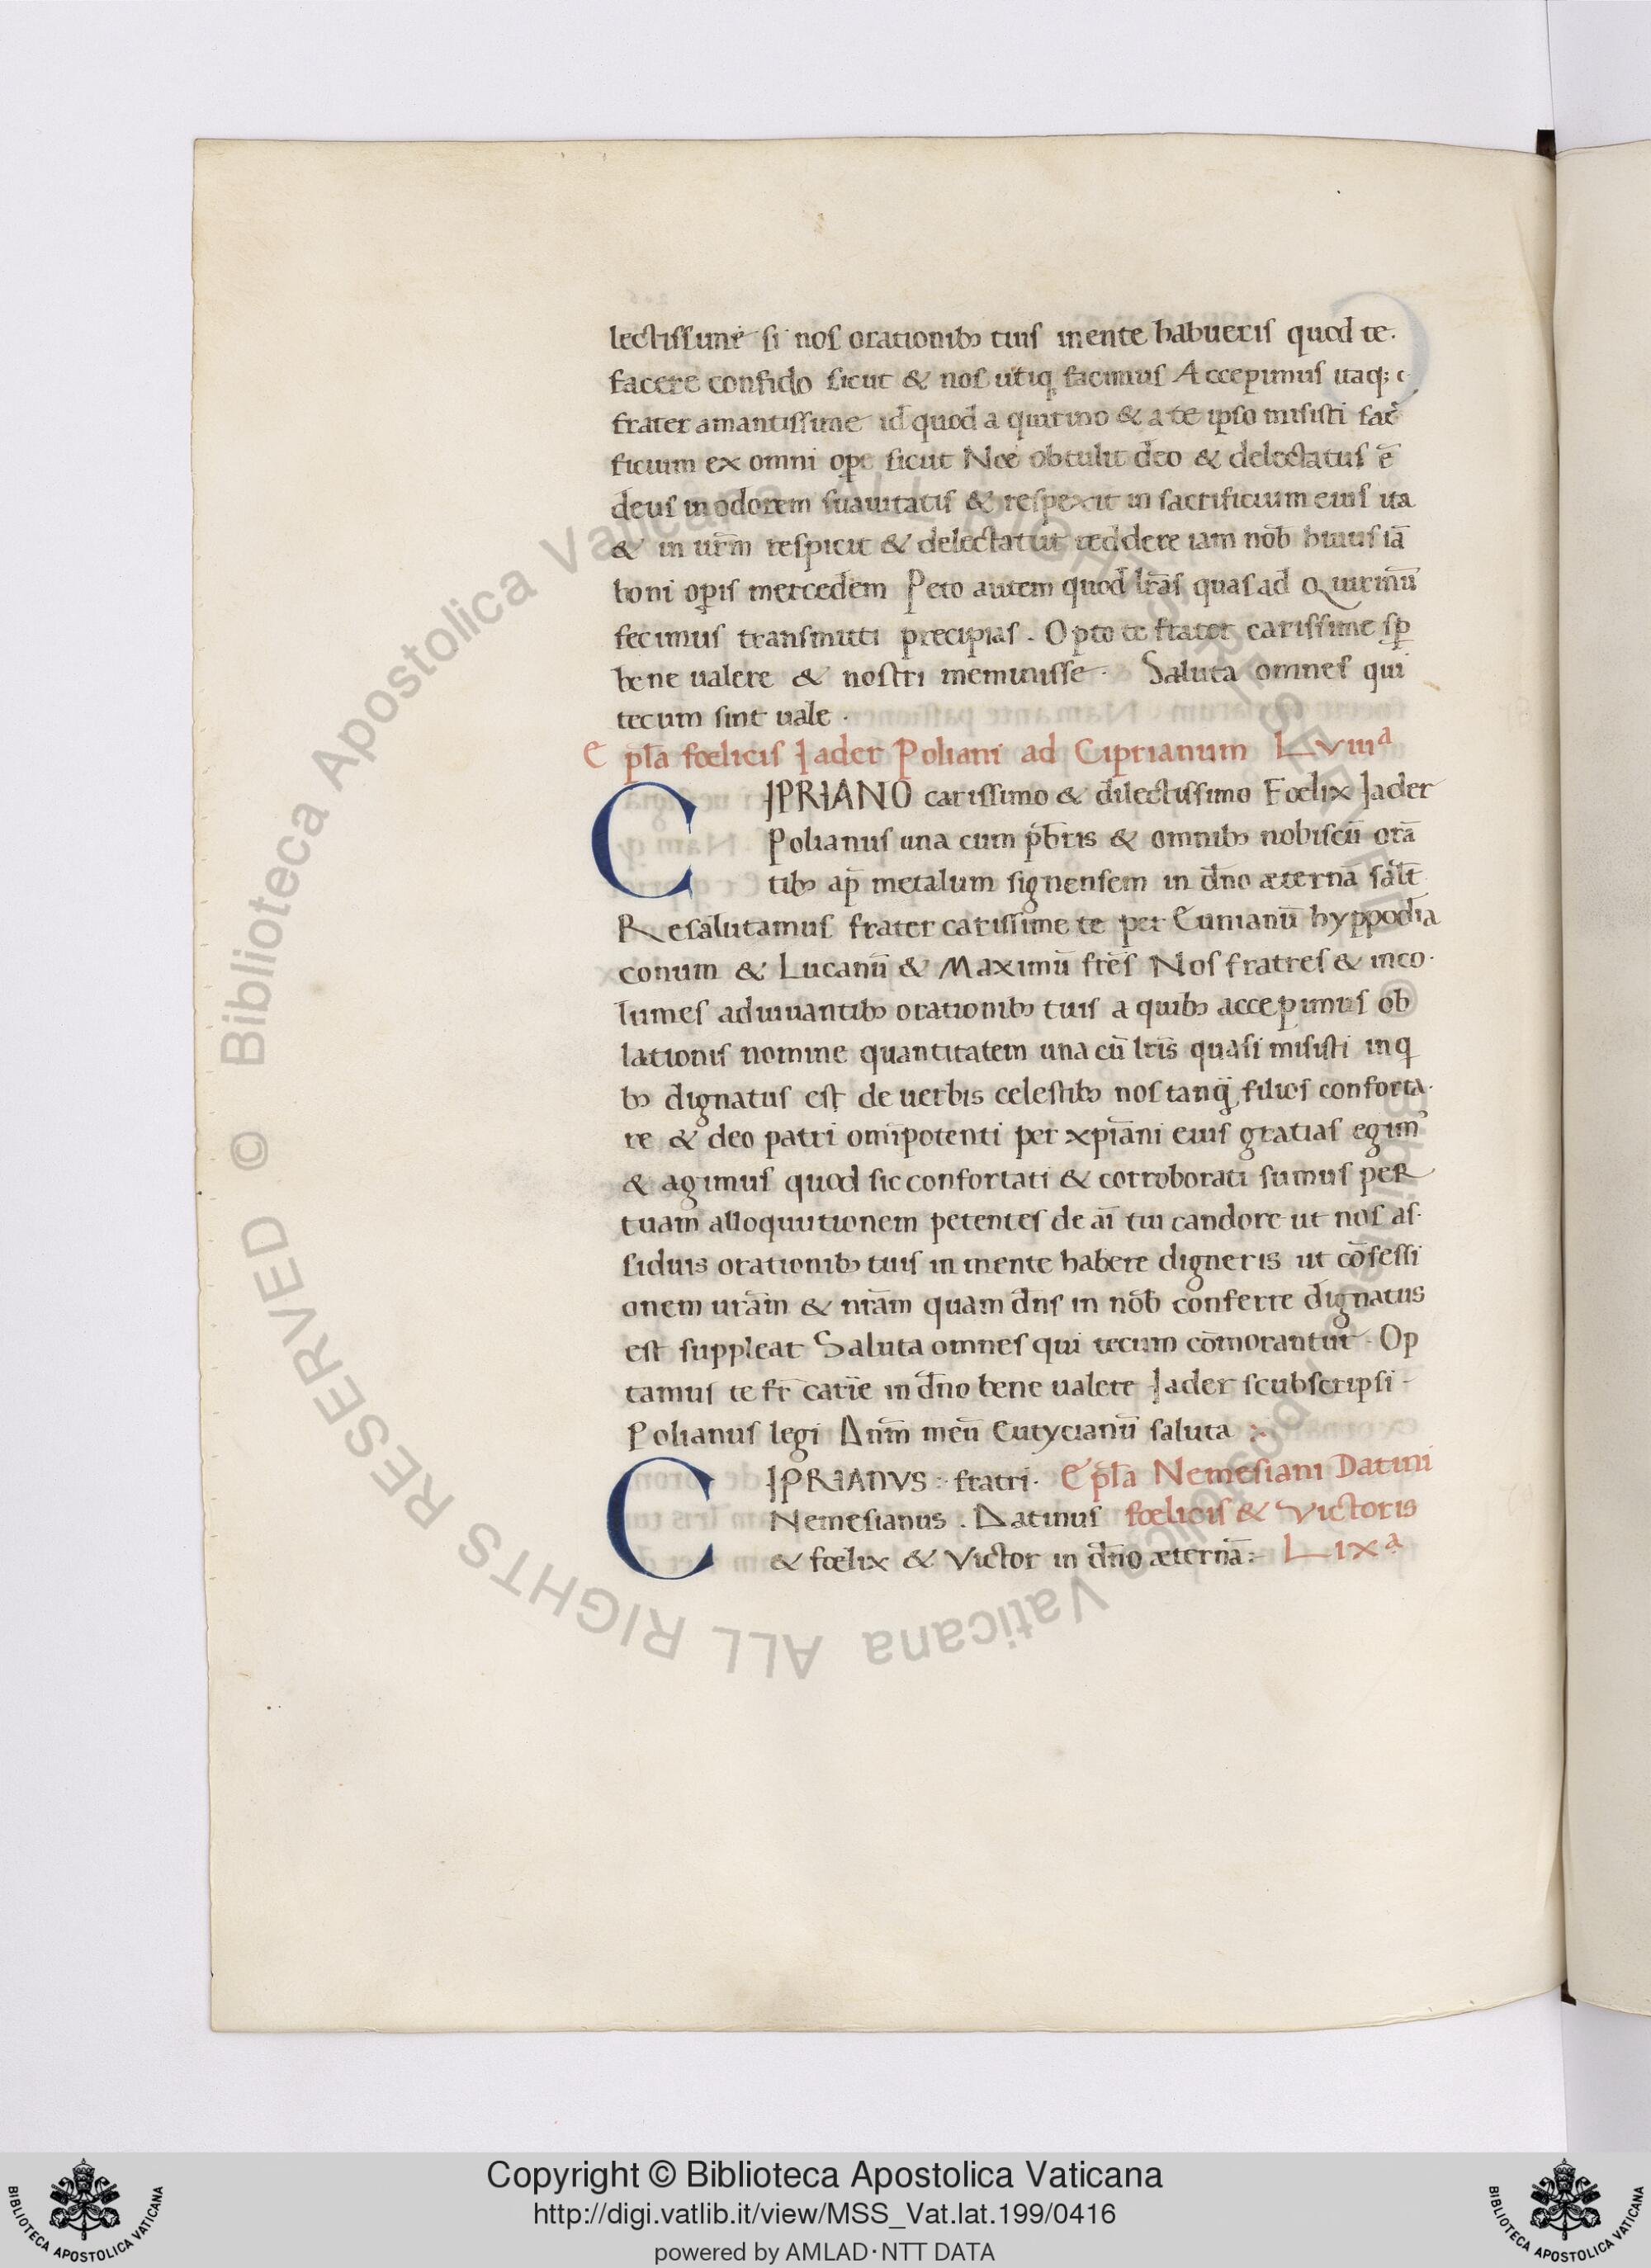 lectissime si nos orationibꝫ tuis mente habueris quod te.
facere confido sicut & nos utiqꝫ facimus Accepimus itaqꝫ
frater amantissime id quod a quirino & a te ipso misisti sacͥ
ficium ex omni oꝑe sicut Noe obtulit deo & delectatus ē
deus in odorem suauitatis & respexit in sacrificium eius ita
& in ur̄m respicit & delectatur reddere iam nob̄ huius iā
boni oꝑis mercedem Peto autem quod lr̄as quas ad Quirinū
fecimus transmitti precipias . Opto te frater carissime sꝑ
bene ualere & nostri meminisse . Saluta omnes qui
tecum sint uale .
Epl̄a fœlicis Jader Poliani ad Ciprianum LVIIIᵃ
CIPRIANO carissimo & dilectissimo Fœlix Jader
Polianus una cum pb̄ris & omnibꝫ nobiscū orā
tibꝫ ap̄ metalum signensem in dn̄o æternā sal̄t
Resalutamus frater carissime te per Eunianū hyppodia
conum & Lucanū & Maximū fr̄es Nos fratres & inco.
lumes adiuuantibꝫ orationibꝫ tuis a quibꝫ accepimus ob
lationis nomine quantitatem una cū lr̄is quasi misisti in q
bꝫ dignatus est de uerbis celestibꝫ nos tanq̄ filios conforta.
re & deo patri om̄ipotenti per xp̄iani eius gratias egim᷒
& agimus quod sic confortati & corroborati sumus peR
tuam alloquutionem petentes de aī tui candore ut nos as.
siduis orationibꝫ tuis in mente habere digneris ut cōfessi
onem ur̄am & nr̄am quam dn̄s in nob̄ conferre dignatus
est suppleat Saluta omnes qui tecum cōmorantur . Op
tamus te fr̄ car̄ie in dn̄o bene ualere Jader scubscripsi -
Polianus legi Dn̄m meū Eutycianū saluta :~
CIPRIANVS : fratri . Epl̄a Nemesiani Datini
Nemesianus . Datinus fœlicis & Victoris
& fœlix & Victor in dn̄o æternā :- LIXᵃ
Copyright © Biblioteca Apostolica Vaticana
http://digi.vatlib.it/view/MSS_Vat.lat.199/0416
powered by AMLAD·NTT DATA
BIBLIOTECA APOSTOLICA VATICANA
BIBLIOTECA APOSTOLICA VATICANA
© Biblioteca Apostolica Vaticana ALL RIGHTS RESERVED
© Biblioteca Apostolica Vaticana ALL RIGHTS RESERVED